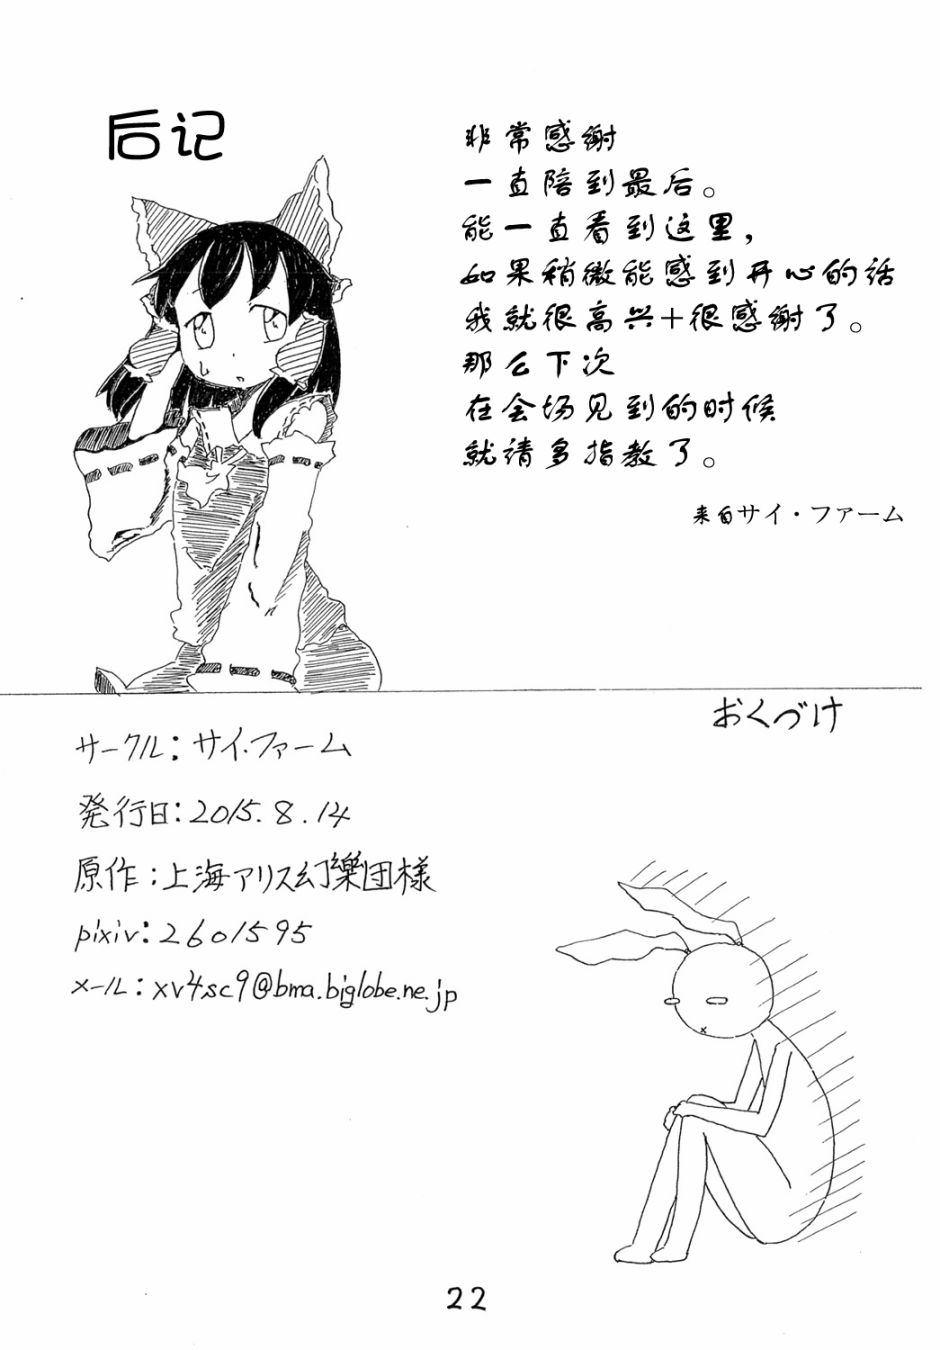 后记
非常感谢
一直陪到最后。
能一直看到这里，
如果稍微能感到开心的话
我就很高兴+很感谢了。
那么下次
在会场见到的时候
就请多指教了。
来自サイ・ファーム
おくづけ
サークル：サイ・ファーム
発行日：2015.8.14
原作：上海アリス幻樂団様
pixiv：2601595
メール：xv4sc9@bma.biglobe.ne.jp
22